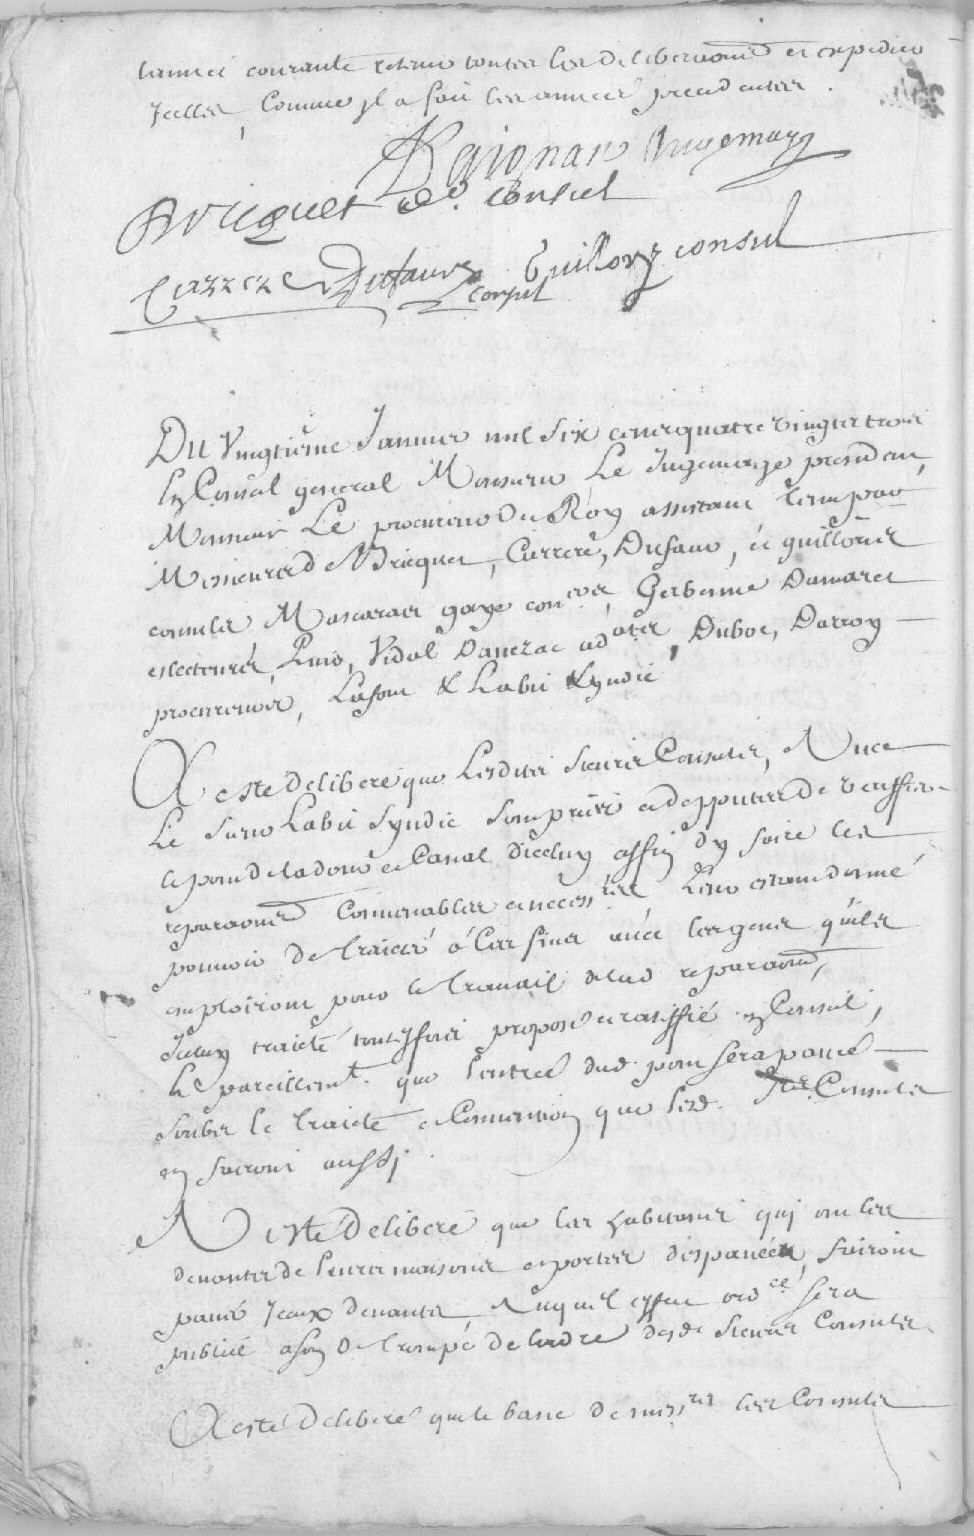 lannee courante retenir toutes les deliberaōns et expedier
Jcelles, comme jl a fait les annees precedentes.
Juge mage
Bricquet consul
Carrere Dufaur consul Guilloy consul
Du Vingtiesme Januier mil six cens quatre vingts trois
En Conseil general Monsieur Le Jugemage president,
Monsieur Le procureur du Roy assistant
Messieurs de Bricquet, Carrere, Dufaur, et guilloux
consuls Mascaras goye con.ers Gerbenne Damares
eslecteurs, Vidal Dauezac ad.ats, Duboc, Darroy
procureurs, Lafont & Labie Syndic
A esté deliberé que Lesdits Sieurs Consuls, Auec
Le Sieur Labie Syndic sont priés et depputtes de
le pont de ladour et Canal affin dy faire les
reparaōns Conuenables et necess.res leur estant donné
pouuoir de traiter à Ces fins auec les gens quils
emploiront pour le trauail desd reparaōns,
Jceluy traité toutesfois proposé et ratiffié en Conseil,
Et pareillem.t que l'entrée dud. pont sera paué
soubs le traité et Conuention que lesd. Srs. Consuls
en fairont aussj.
A esté deliberé que les habitans quj ont les
deuants de leurs maisons et portes despauées, fairont
pauer Jceux deuants, Auquel effet ord.ce sera
publié a son de trompe de lordre desd. Sieurs Consuls.
A esté deliberé que le banc de mess.rs les Consuls